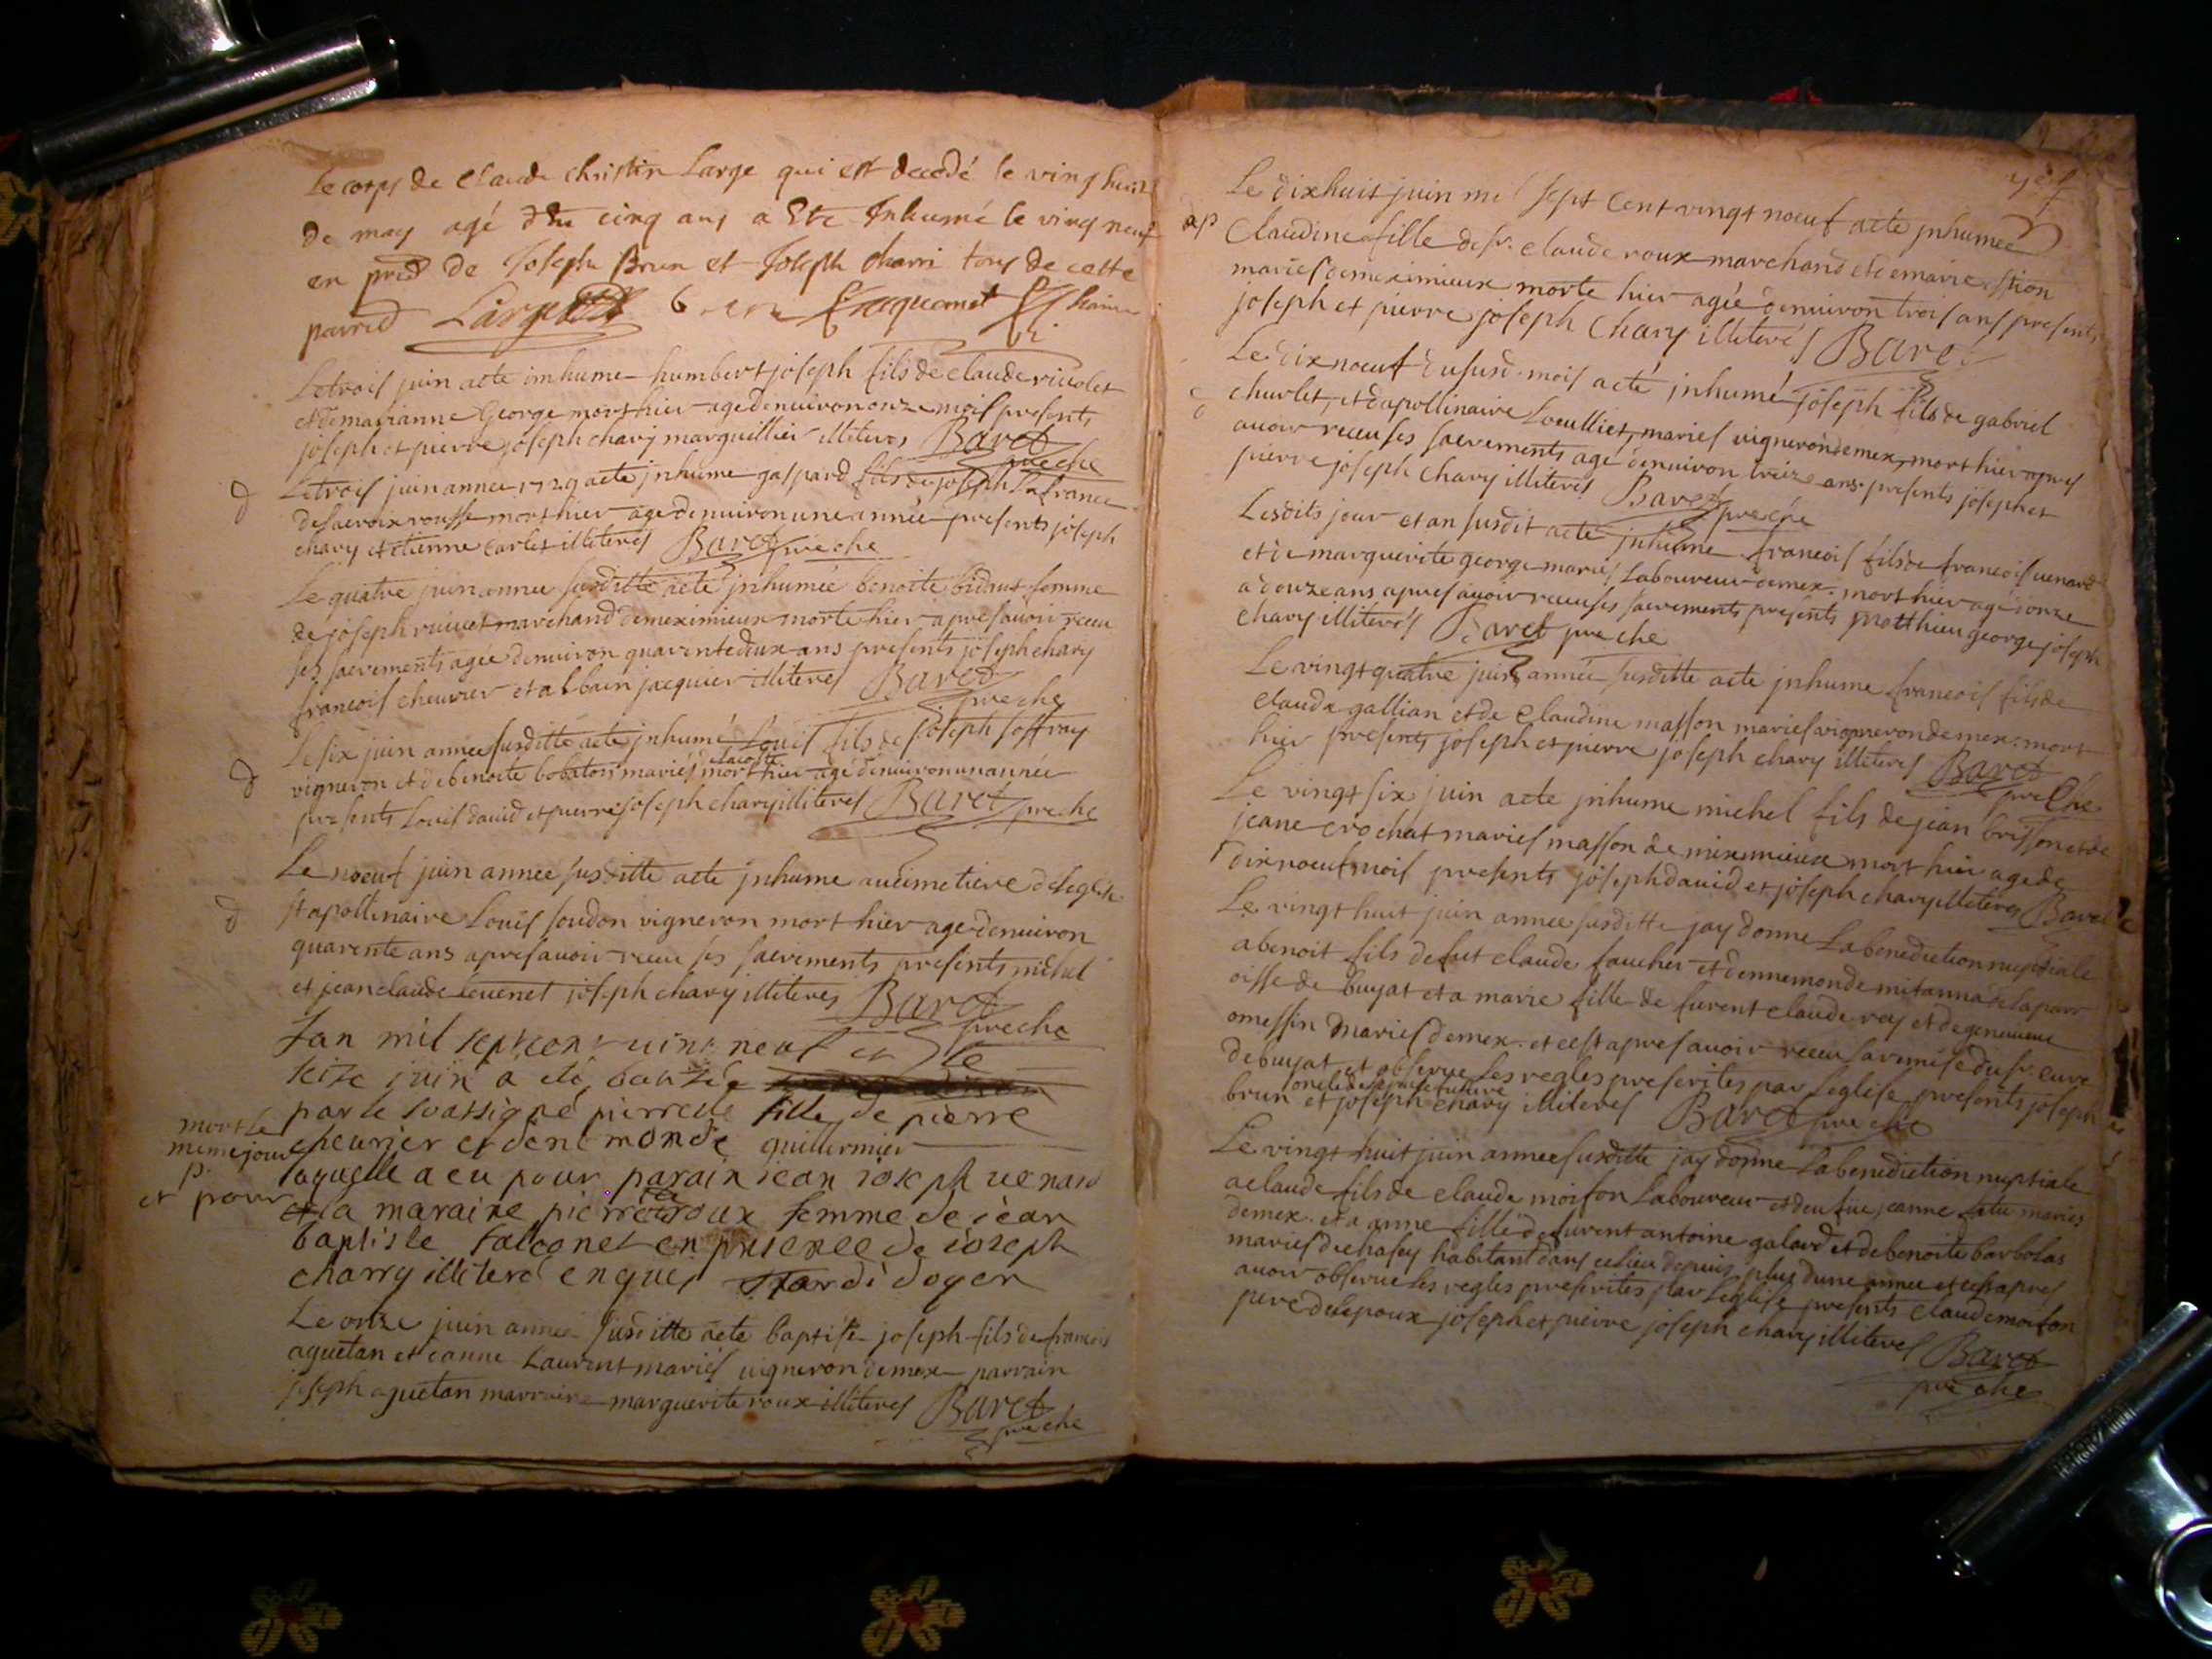 Le corps de Claude Christin Large qui est decedé le ving huit
de may agé de cinq ans a été Inhumé le ving neuf
en de Joseph Brun et Joseph Charri tous de cette
Large
Le trois juin a eté imhumé humbert joseph fils de claude riuolet
et de marianne George mort hier agé denuiron onze mois presents
joseph et pierre joseph chary marguillier illiteres Baret
pre che
Le trois juin annee 1729 a eté jnhume gaspard fils de joseph La france
d
de la croix rousse mort hier agé denuiron une année presents joseph
chary et etienne Carlet illiterés Baret pre che
Le quatre juin annee susditte a eté jnhumée benoite bidaut femme
de joseph riuuet marchand de meximieux morte hier apres auoir receu
les sacrements agée denuiron quarente deux ans presents joseph chary
francois cheurier et albain jacquier illiteres Baret
pre che
Le six juin année susditte a eté jnhumé Louis fils de joseph soffray
d
vigneron et de benoite bobaton mariés mort hier agé denuiron un année
presents Louis dauid et pierre joseph chary illiteres Baret pre che
Le noeuf juin annee susditte a eté jnhume au cimetiere de leglise
d
st apollinaire Louis soudon vigneron mort hier agé denuiron
quarente ans apres auoir receu les sacrements presents michel
et jean claude teuenet joseph chary illiteres Baret
pre che
Lan mil sept cent uint neuf et le
seize juin a eté batisée
par le soassigné pierrette fille de pierre
mort le
meme jour
cheurier et denemonde guillermier
p.
laquelle a eu pour parain jean joseph uenard
et pour
la maraine pierrette roux femme de jean
baptiste falconet en presence de joseph
charry illiteré enquis doyen
Le onze juin année susditte a eté baptisé joseph fils de francois
aguetan et eanne Laurent mariés uigneron de mex parrain
joseph aguetan marraine marguerite roux illiteres Baret
pre che
Le dixhuit juin mil sept cent vingt noeuf a eté jnhumee
ap
Claudine fille de sr. claude roux marchand et de marie stion
mariés de meximieux morte hier agée denuiron trois ans presents
joseph et pierre joseph Chary illiterés Baret
Le dix noeuf du susd. mois a eté jnhumé joseph fils de gabriel
d
churlet, et dapollinaire Loeulliet, mariés uigneron de mex, mort hier apres
auoir receu ses sacrements agé denuiron treize ans presents joseph et
pierre joseph Chary illiterés Baret pre che
Lesdits jour et an susdit a eté jnhumé francois fils de francois uenard
et de marguerite george mariés Laboureur de mex. mort hier agé donze
a douze ans apres auoir receu ses sacrements presents matthieu george joseph
chary illiterés Baret pre che
Le vingt quatre juin année susditte a eté jnhume francois fils de
claude gallian et de Claudine masson mariés vigneron de mex. mort
hier presents joseph et pierre joseph chary illiteres Baret
pre Che
Le vingt six juin a eté jnhume michel fils de jean brisson et de
jeane crochat mariés masson de meximieux mort hier agé de
dix noeuf mois presents joseph dauid et joseph chary illiteres Baret
Le vingt huit juin annee susditte jay donne La benediction nuptiale
a benoit fils defeut claude faucher et dennemonde mitanna de la parr
oisse de buyat et a marie fille de furent claude rey et de geneuieue
omessin mariés de mex. et cest apres auoir receu la remise du sr. cure
de buyat et obserué Les regles prescrites par Leglise presents joseph
oncle de lepouse future
brun et joseph chary illiteres Baret pre che
Le vingt huit juin annee susditte jay donne La benediction nuptiale
a claude fils de claude moifon Laboureur et de feüe jeanne mariés
de mex. et a anne fille de furent antoine galard et de benoite barbolas
mariés de chasey habitant dans ce lieu depuis plus dune annee et cest apres
auoir obserue les regles prescrites par Leglise presents claude moifon
pere de lepoux joseph et pierre joseph chary illiteres Baret
pre che